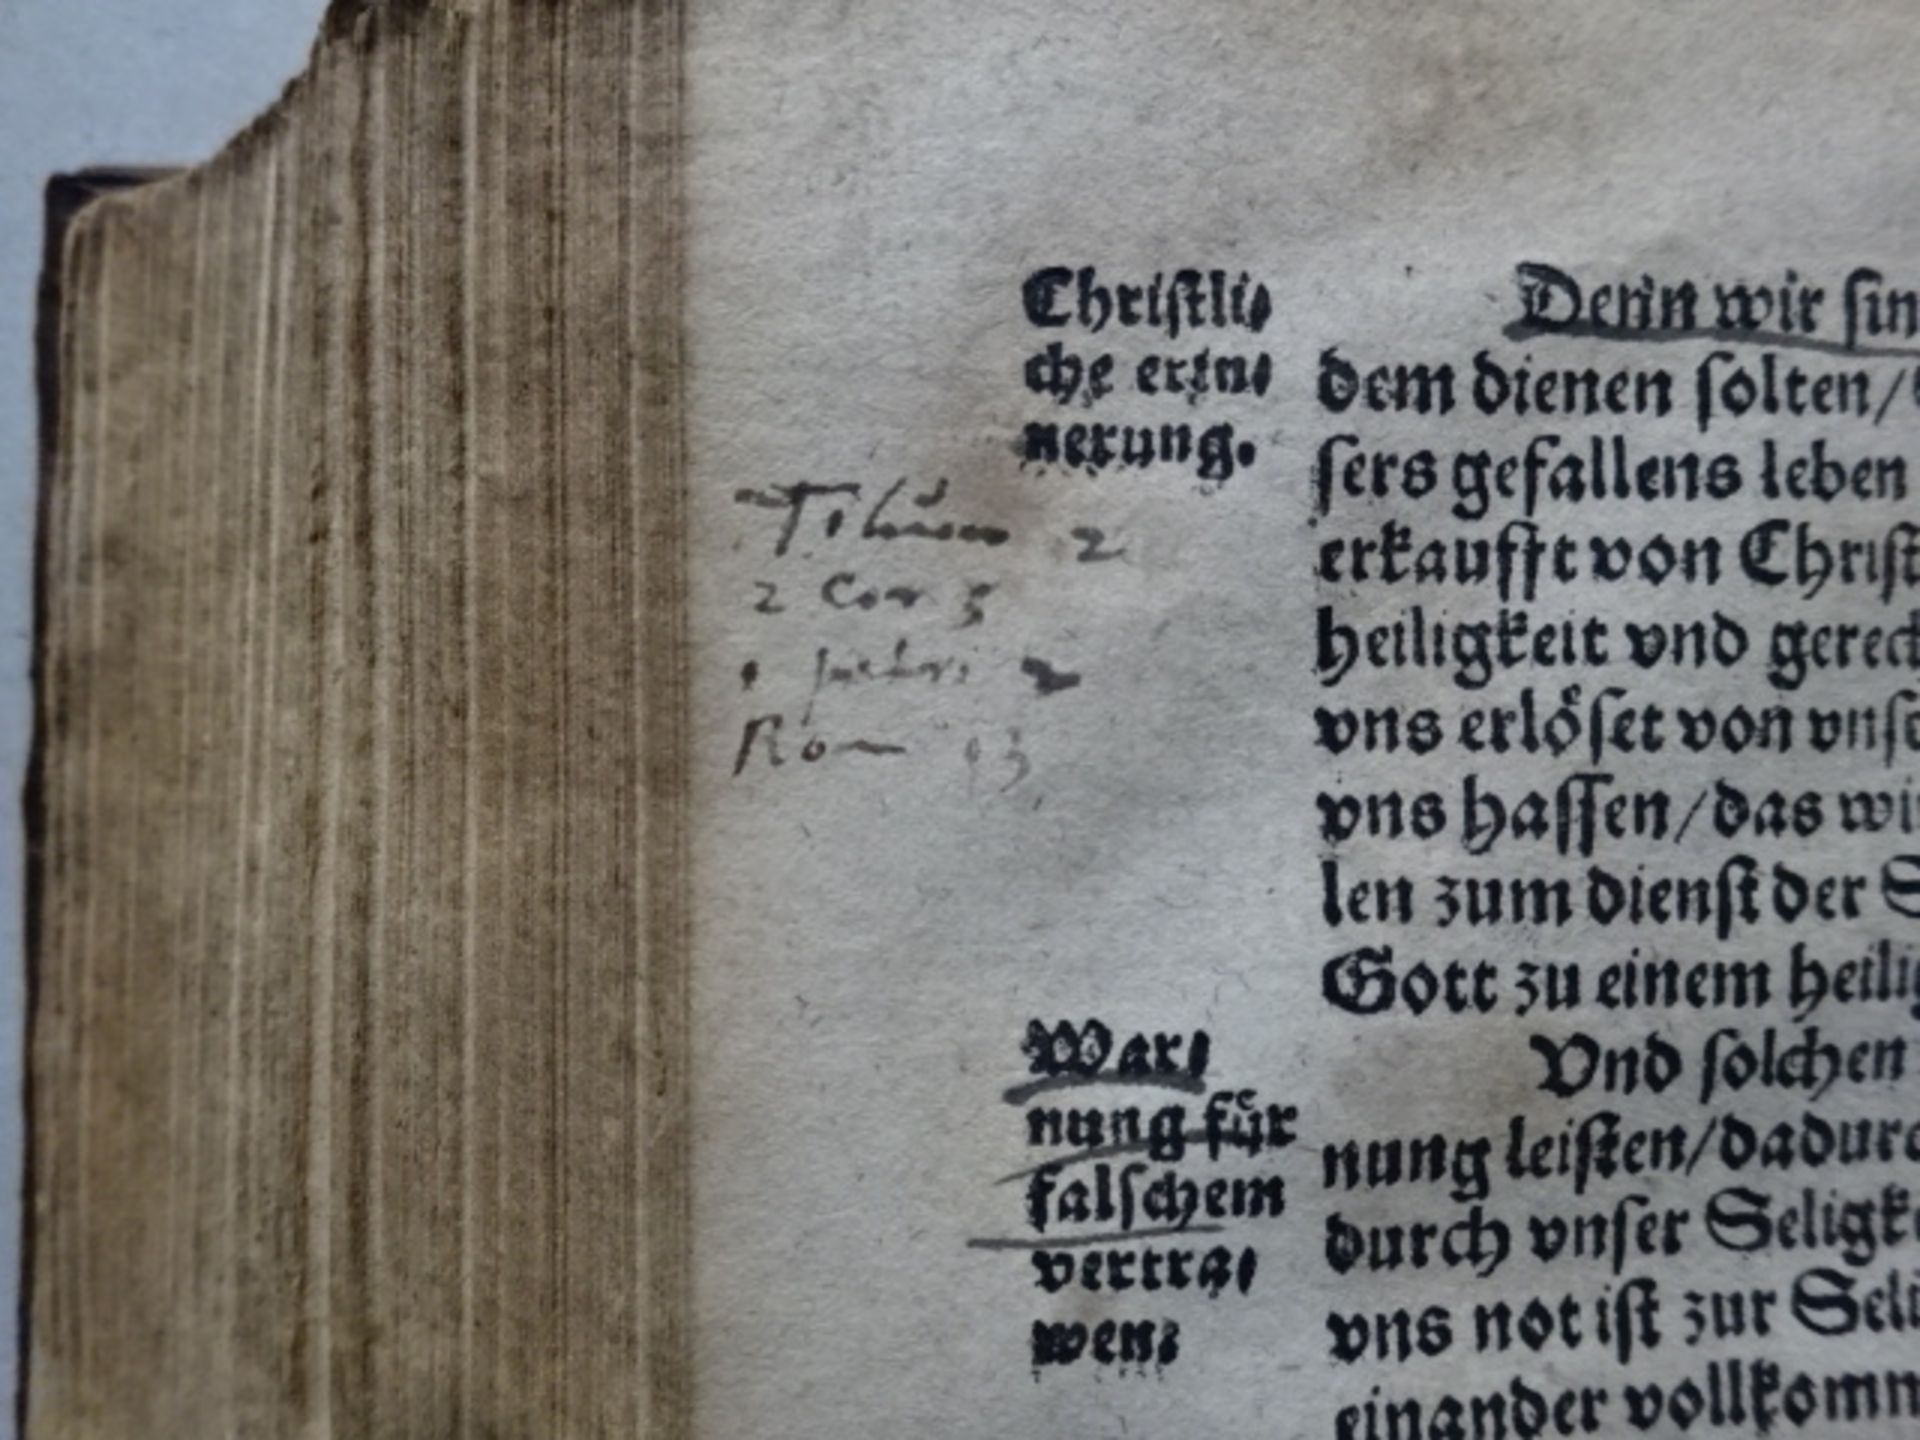 Christli⸗
che erin⸗
nerung.
Titum 2
2 Cor 5
1 petri 2
Rom 13
War⸗
nung für
falschem
vertra⸗
wen.
Denn wir sin
dem dienen solten/
sers gefallens leben
erkaufft von Christ
heiligkeit vnd gerech
vns erlöset von vnse
vns hassen/das wi
len zum dienst der S
Gott zu einem heilig
Vnd solchen
nung leisten/dadurc
durch vnser Seligke
vns not ist zur Seli
einander vollkomm